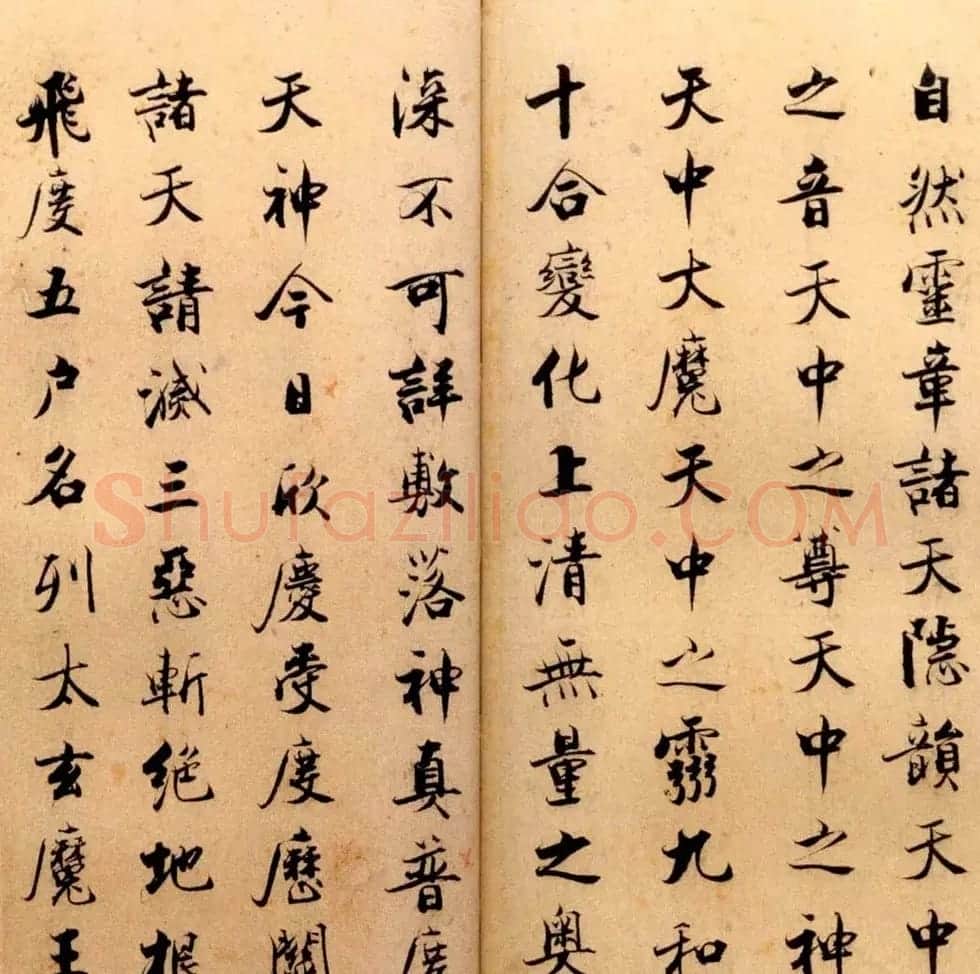 自然靈章諸天隱韻天中
之音天中之尊天中之神
天中大魔天中之靈九和
十合變化上清無量之奧
深不可詳敷落神真普度
天神今日欣慶受度歷關
諸天請滅三惡斬絕地根
飛度五户名列太玄魔王
Shufaziliao.COM